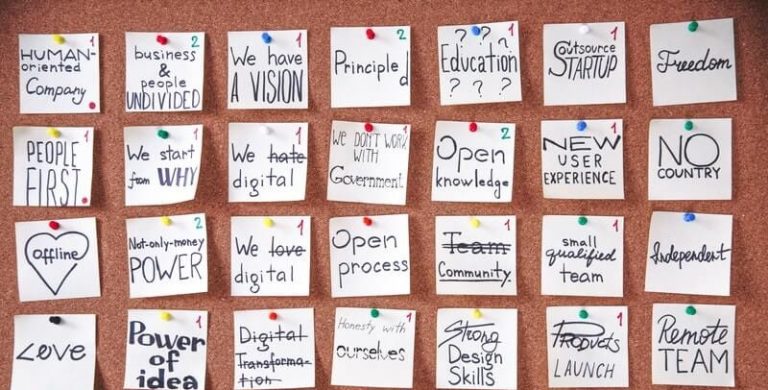 1
HUMAN-
oriented
Company
2
business
&
people
UNDIVIDED
1
We have
A VISION
2
Principled
1
Education
? ? ?
? ? ?
1
Outsource
STARTUP
Freedom
1
PEOPLE
FIRST
1
We start
from WHY
1
We hate
digital
1
WE DON'T WORK
WITH
Government
2
Open
knowledge
1
NEW
USER
EXPERIENCE
NO
COUNTRY
offline
2
Not-only-money
POWER
We love
digital
Open
process
1
Team
Community
1
small
qualified
team
Independent
Love
1
Power
of
idea
1
Digital
Transforma-
tion
1
Honesty with
ourselves
Strong
Design
Skills
1
Products
LAUNCH
Remote
TEAM